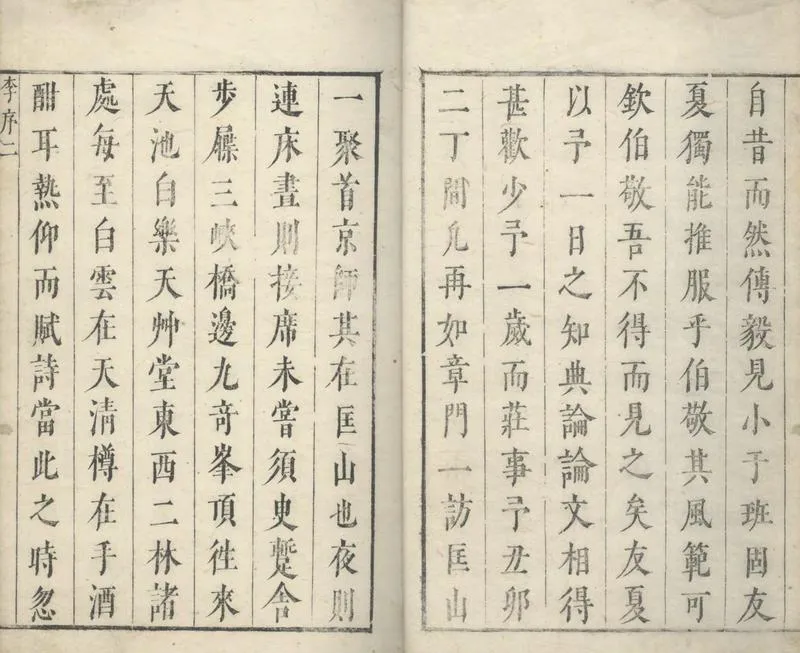 自昔而然傳毅見小于班固友
夏獨能推服乎伯敬其風範可
欽伯敬吾不得而見之矣友夏
以予一日之知典論論文相得
甚歡少予一歲而莊事予丑卯
二丁間凡再如章門一訪匡山
一聚首京師其在匡山也夜則
連床晝則接席未嘗須臾蹔舍
步屧三峽橋邊九竒峯頂徃來
天池白樂天艸堂東西二林諸
處每至白雲在天清樽在手酒
酣耳熱仰而賦詩當此之時忽
李序二